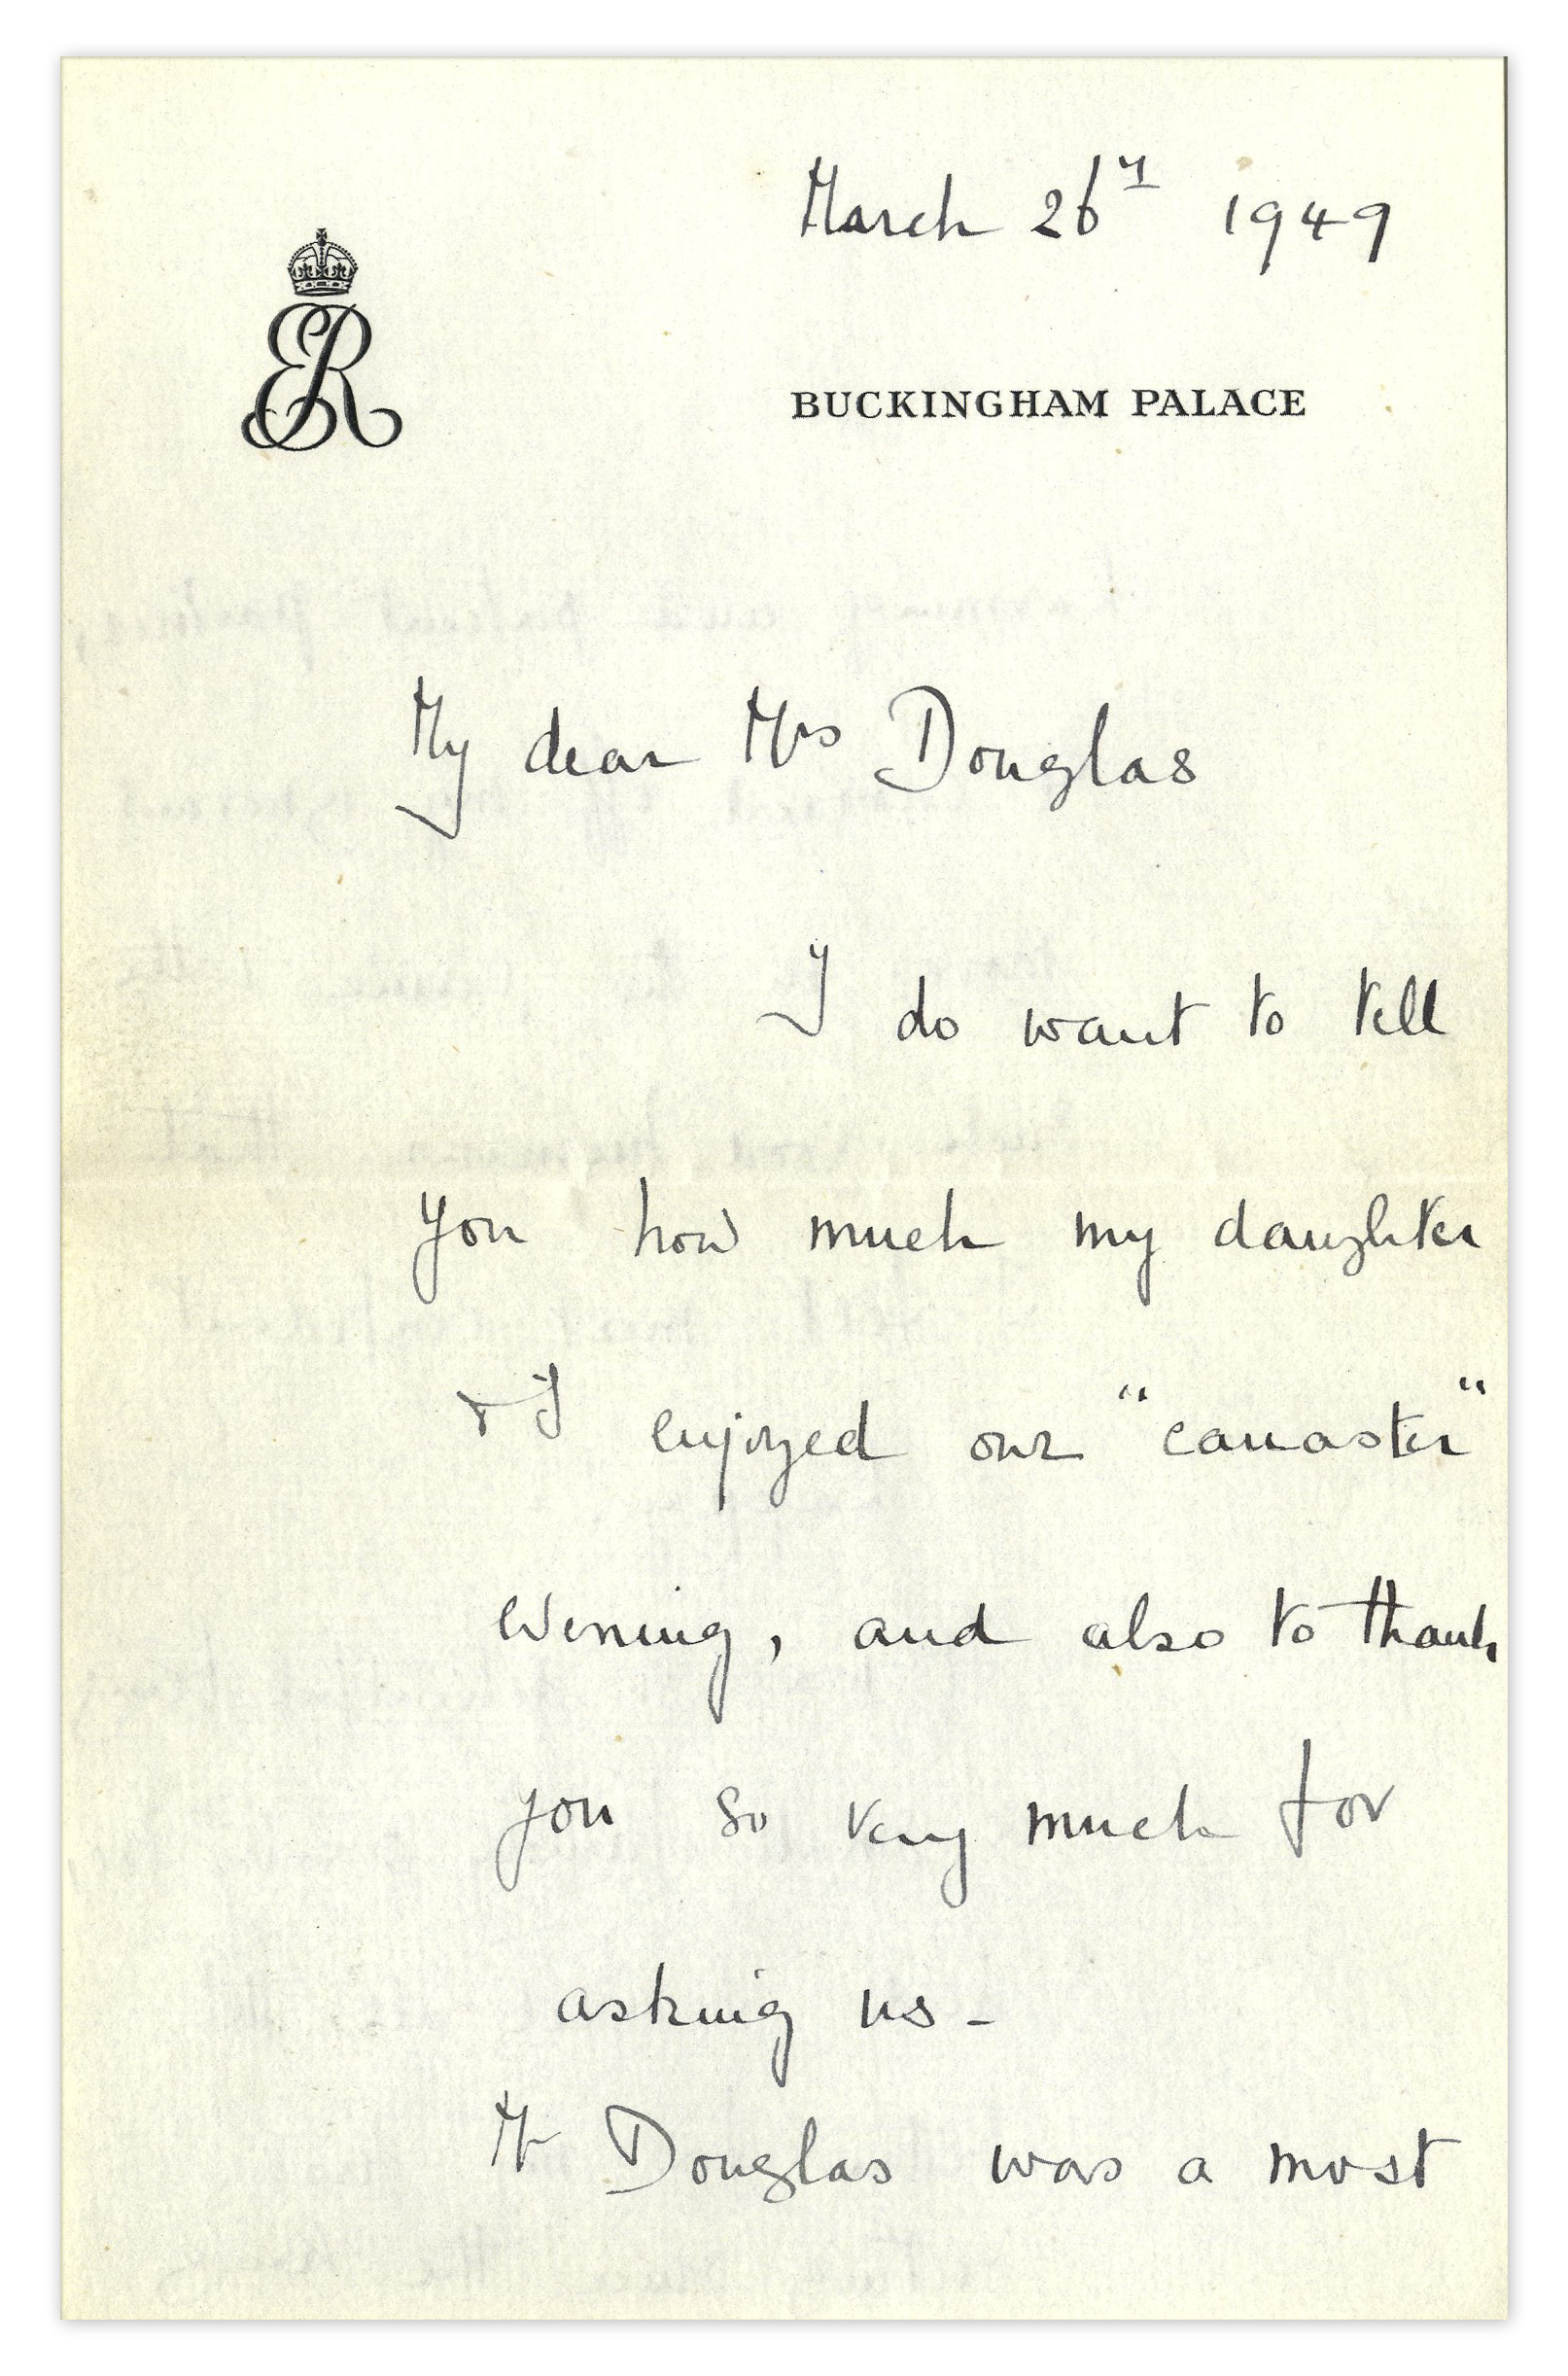 March 26th 1949
ER
BUCKINGHAM PALACE
My dear Mrs Douglas
I do want to tell
you how much my daughter
& I enjoyed our "canaster"
evening, and also to thank
you so very much for
asking us -
Mr Douglas was a most